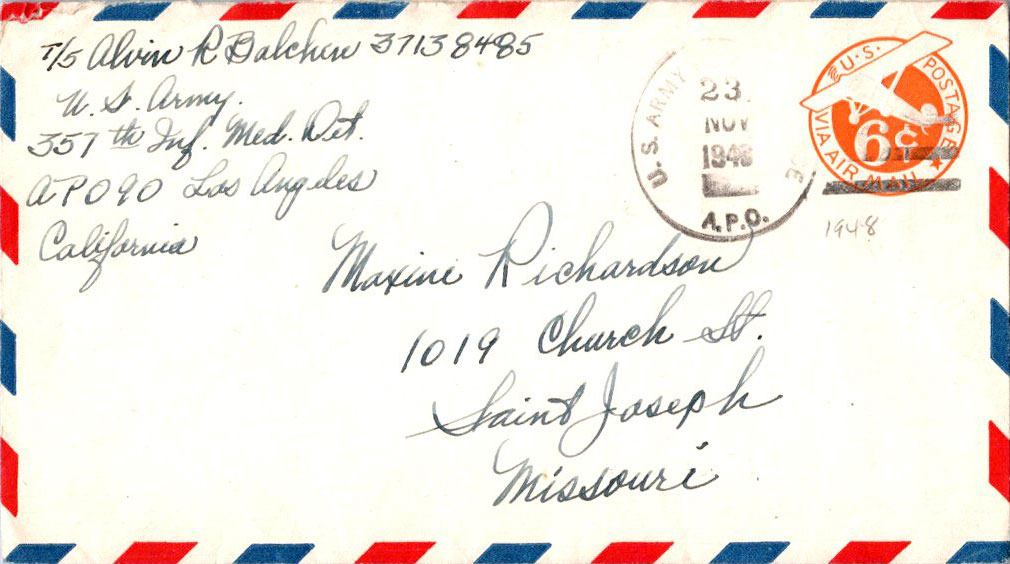 T/5 Alvin R Balchen 37138485
U. S. Army.
357th Inf. Med. Det.
APO 90 Los Angeles
California
U.S. ARMY
23
NOV
A.P.O.
U.S. POSTAGE
6¢
VIA AIR MAIL
1948
Maxine Richardson
1019 Church St.
Saint Joseph
Missouri